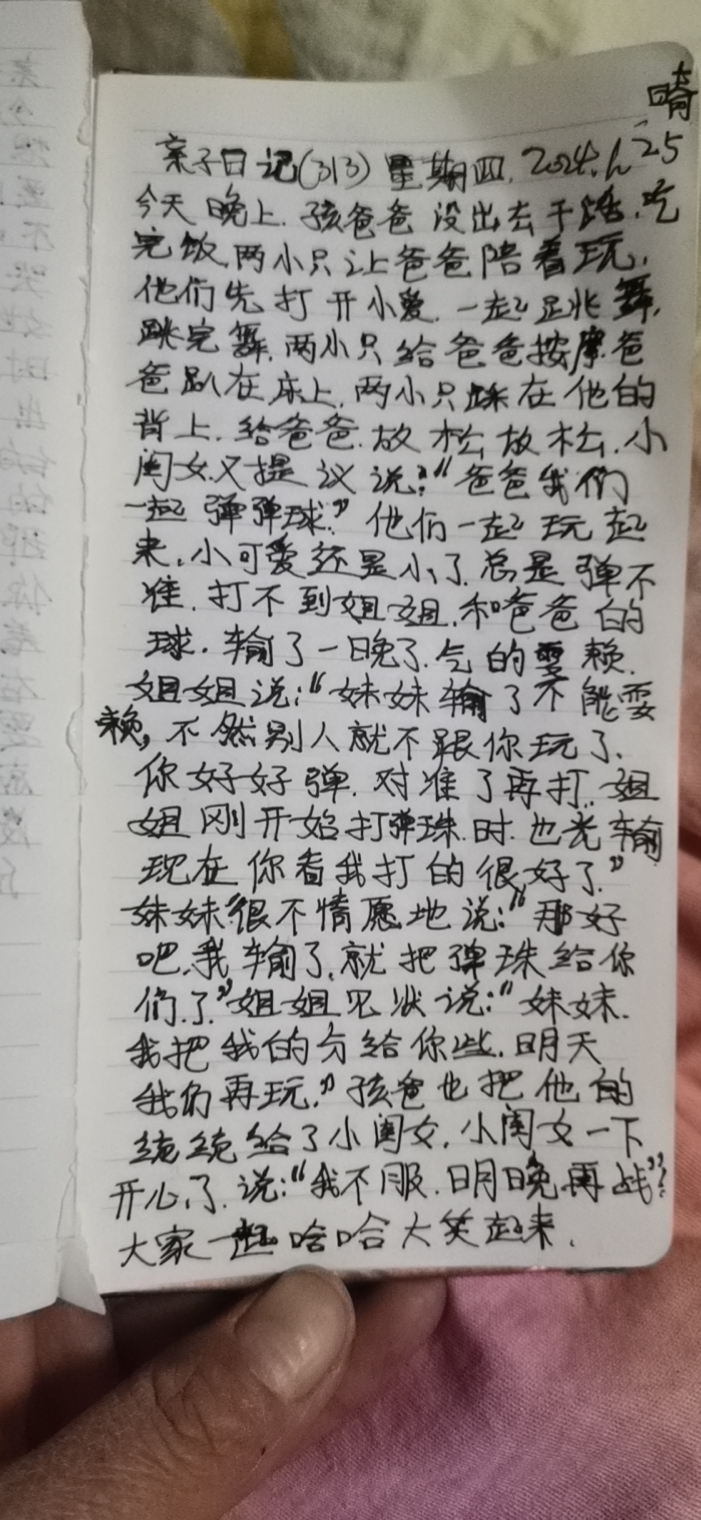 晴
亲子日记(313) 星期四. 2024.1.25
今天晚上.孩爸爸没出去干活.吃
完饭.两小只让爸爸陪着玩,
他们先打开小爱.一起跳舞,
跳完舞.两小只给爸爸按摩.爸
爸趴在床上.两小只踩在他的
背上.给爸爸.放松放松.小
闺女又提议说:"爸爸我们
一起弹弹球."他们一起玩起
来.小可爱还是小了.总是弹不
准.打不到姐姐.和爸爸的
球.输了一晚了.气的要赖.
姐姐说:"妹妹输了不能耍
赖,不然别人就不跟你玩了.
你好好弹.对准了再打..姐
姐刚开始打弹珠.时.也老输
现在你看我打的很好了."
妹妹很不情愿地说:"那好
吧.我输了.就把弹珠给你
们.了"姐姐见状说:"妹妹.
我把我的分给你些.明天
我们再玩."孩爸也把他的
统统给了小闺女.小闺女一下
开心了.说:"我不服.明晚再战"?
大家一起哈哈大笑起来.